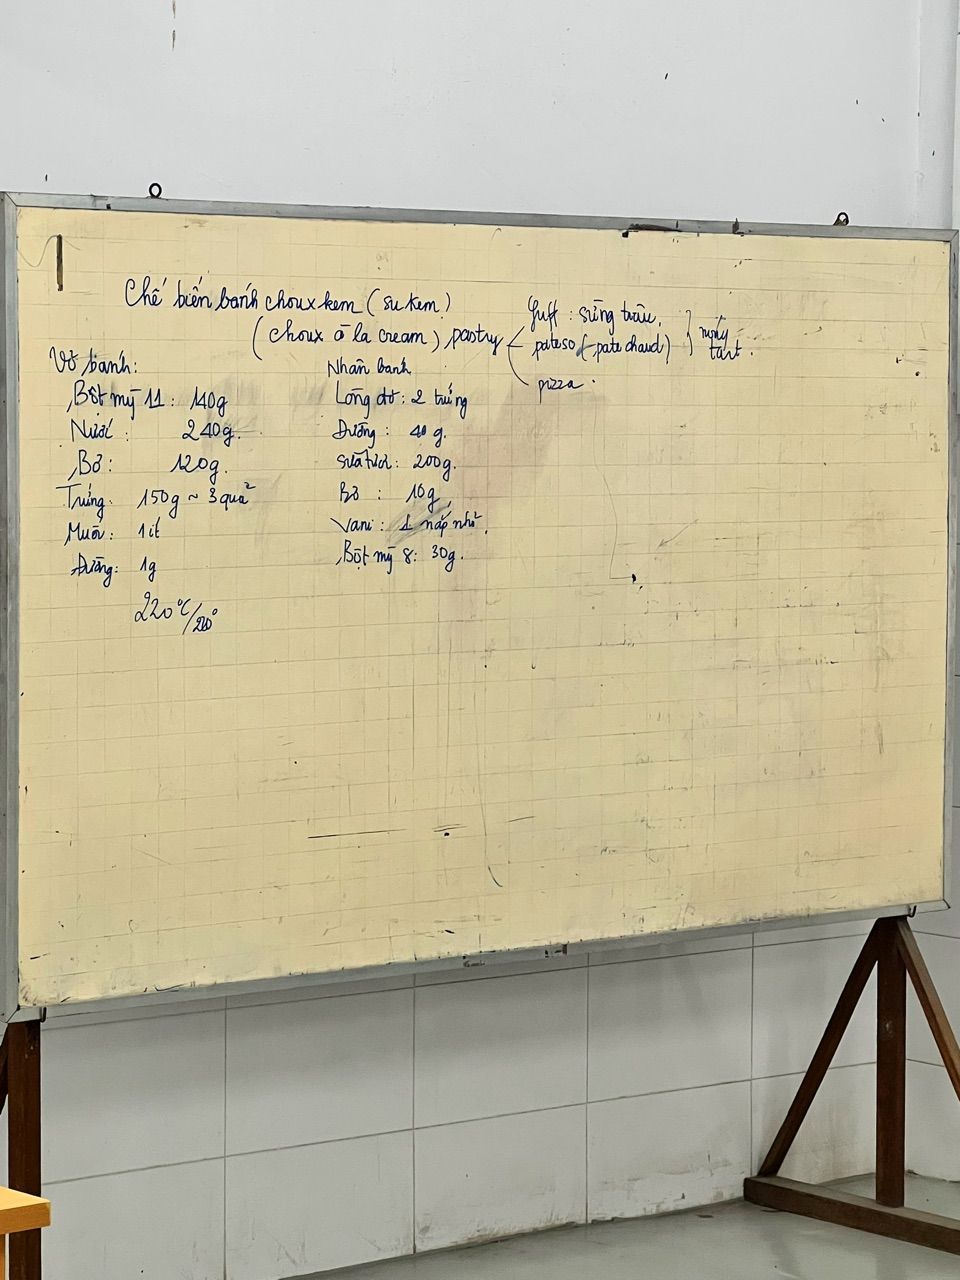 Chế biến bánh choux kem (su kem)
(choux à la cream) pastry
Puff : sừng trâu.
pateso (pate chaud)
tart.
pizza.
Vỏ bánh:
Bột mỳ 11 : 140g
Nước : 240g.
Bơ : 120g.
Trứng. 150g ~ 3 quả
Muối : 1 ít
Đường: 1g
220°C/220°
Nhân banh
Lòng đỏ : 2 trứng
Đường : 40 g.
Sữa tươi : 200g.
Bơ : 10g,
Vani : 1 nắp nhỏ.
Bột mỹ 8: 30g.